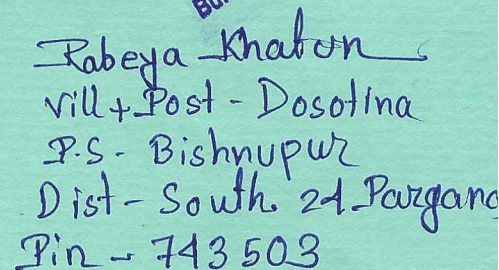 Rabeya Khatun
Vill + Post - Dosotina
P.S - Bishnupur
Dist - South 24 Pargana
Pin - 743503